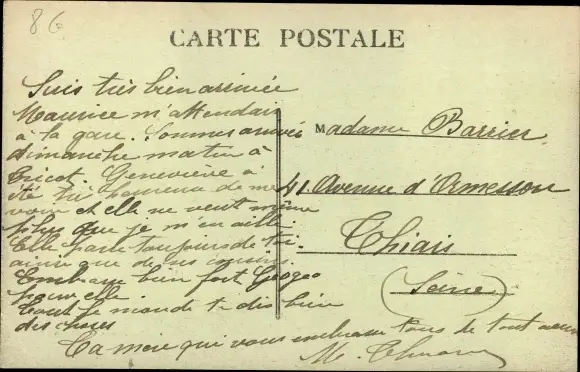 86
CARTE POSTALE
Suis très bien arrivée
Maurice m'attendais
à la gare. Sommes arrivés
dimanche matin à
Tricot. Geneviève à
été très heureuse de me
voir et elle ne veut même
plus que je m'en aille
Elle parle toujours de toi
ainsi que de ses cousins.
Embrasse bien fort Geoges
pour elle.
Tout le monde te dis bien
des choses
Ta mère qui vous embrasse tous de tout coeur
M.
Madame Barrier
41 Avenue d'Ormesson
Thiais
(Seine)